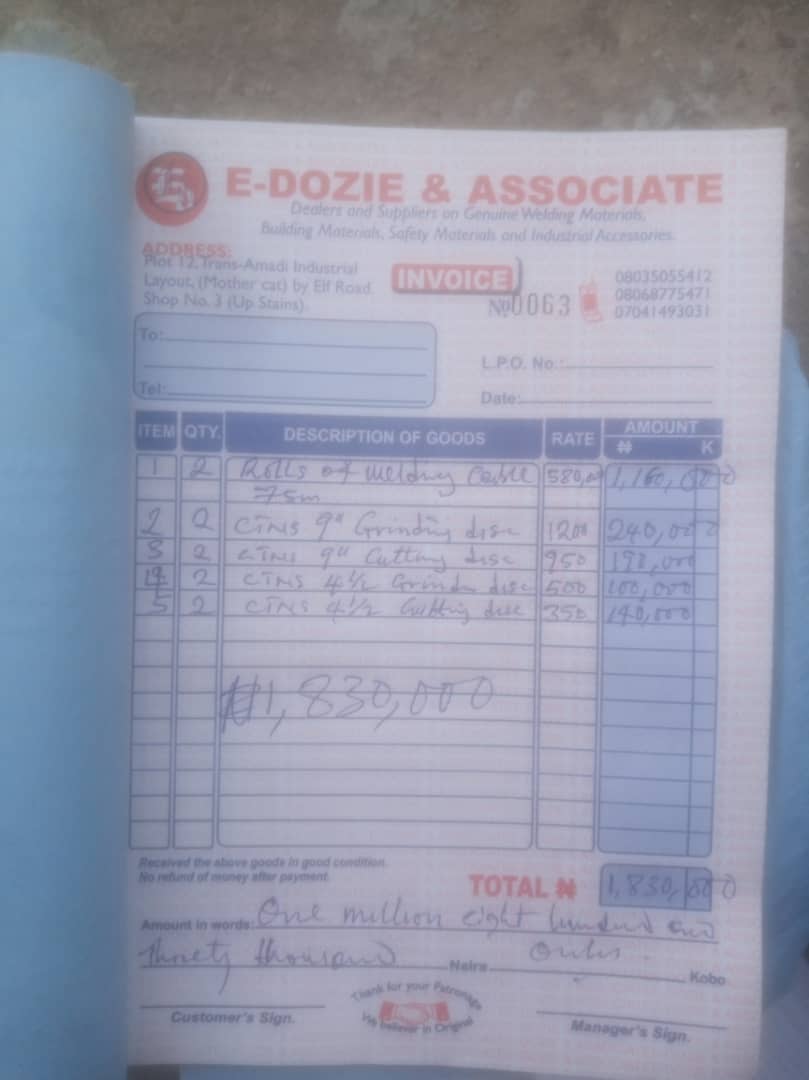 E-DOZIE & ASSOCIATE
Dealers and Suppliers on Genuine Welding Materials,
Building Materials, Safety Materials and Industrial Accessories.
ADDRESS:
Plot 12, Trans-Amadi Industrial
Layout, (Mother cat) by Elf Road.
Shop No. 3 (Up Stains).
INVOICE
No 0063
08035055412
08068775471
07041493031
To:
Tel:
L.P.O. No.:
Date:
ITEM QTY. DESCRIPTION OF GOODS RATE AMOUNT
₦ K
1 2 Rolls of welding cable 580,00 1,160,000
75m
2 2 CTNS 9" Grinding disc 1200 240,000
3 2 CTNS 9" Cutting disc 950 190,000
4 2 CTNS 4½ Grinda disc 500 100,000
5 2 CTNS 4½ Cutting disc 350 140,000
₦1,830,000
Received the above goods in good condition.
No refund of money after payment.
TOTAL ₦ 1,830,000
Amount in words: One million eight hundred and
thirety thousand Naira Kobo
Customer's Sign.
Thank for your Patronage
We believer in Original
Manager's Sign.